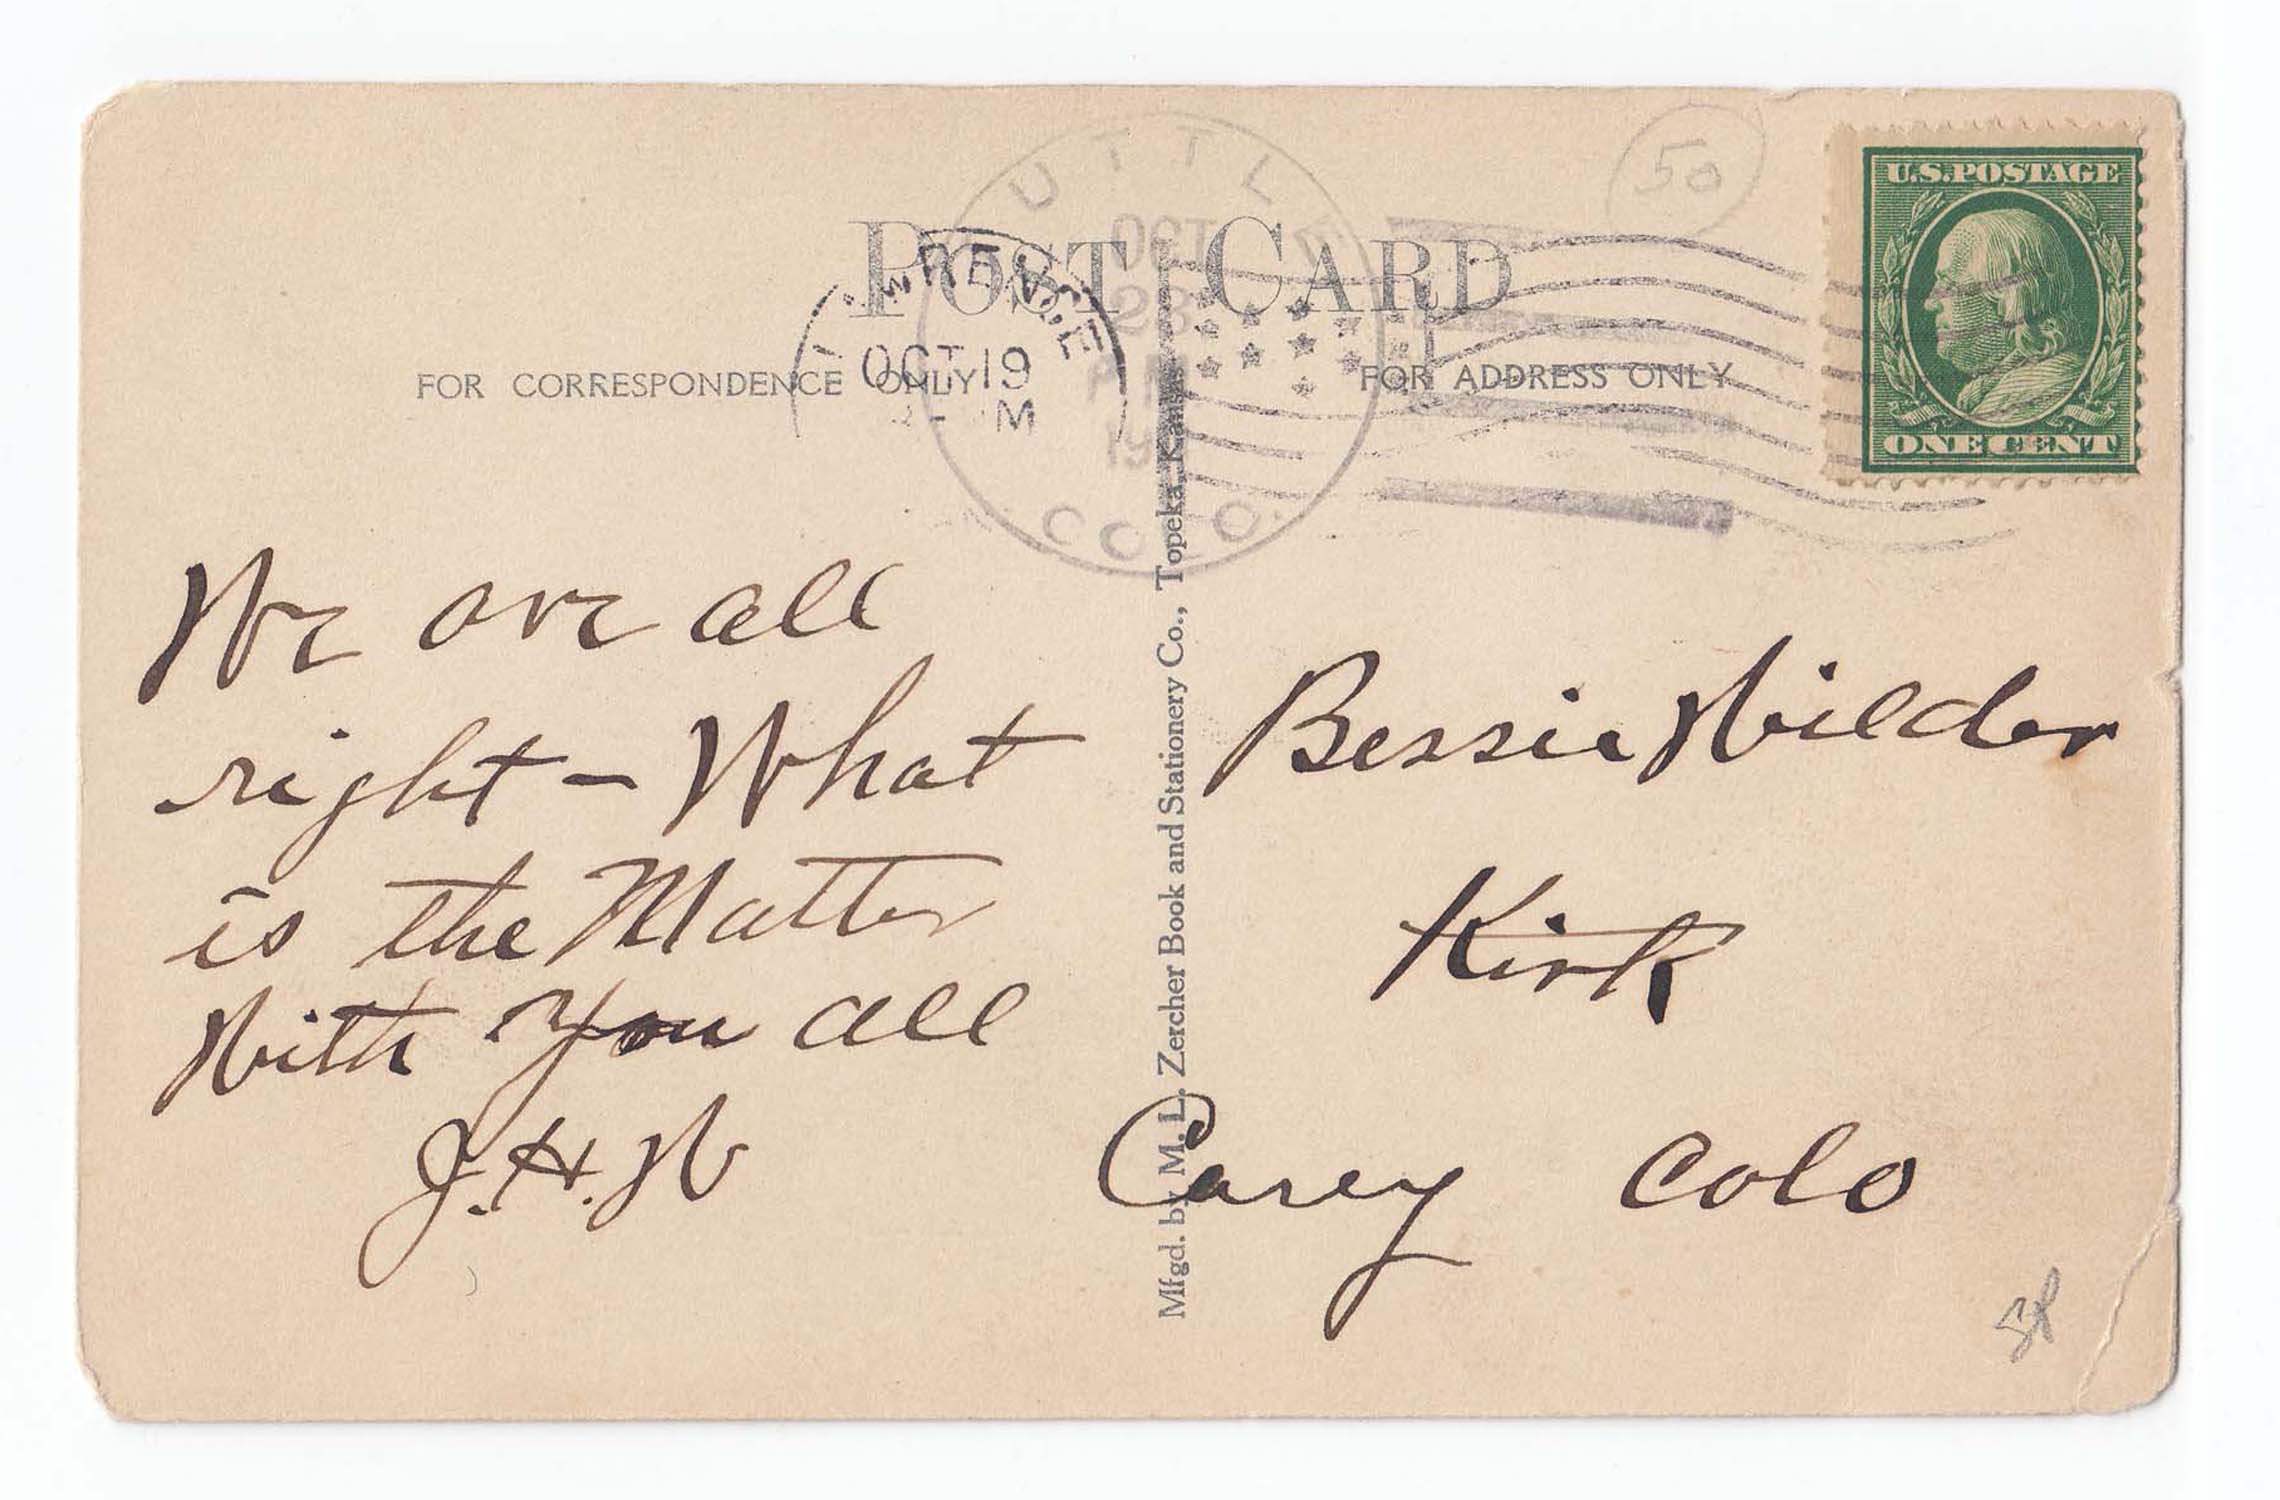 POST CARD
FOR CORRESPONDENCE ONLY
FOR ADDRESS ONLY
50
U.S.POSTAGE
ONE CENT
OCT 19
UTTL
OCT
23
COLO.
We are all
right – What
is the Matter
With You all
J.H.W
Mfgd. by M. L. Zercher Book and Stationery Co., Topeka, Kansas
Bessie Wilder
Kirk
Carey Colo